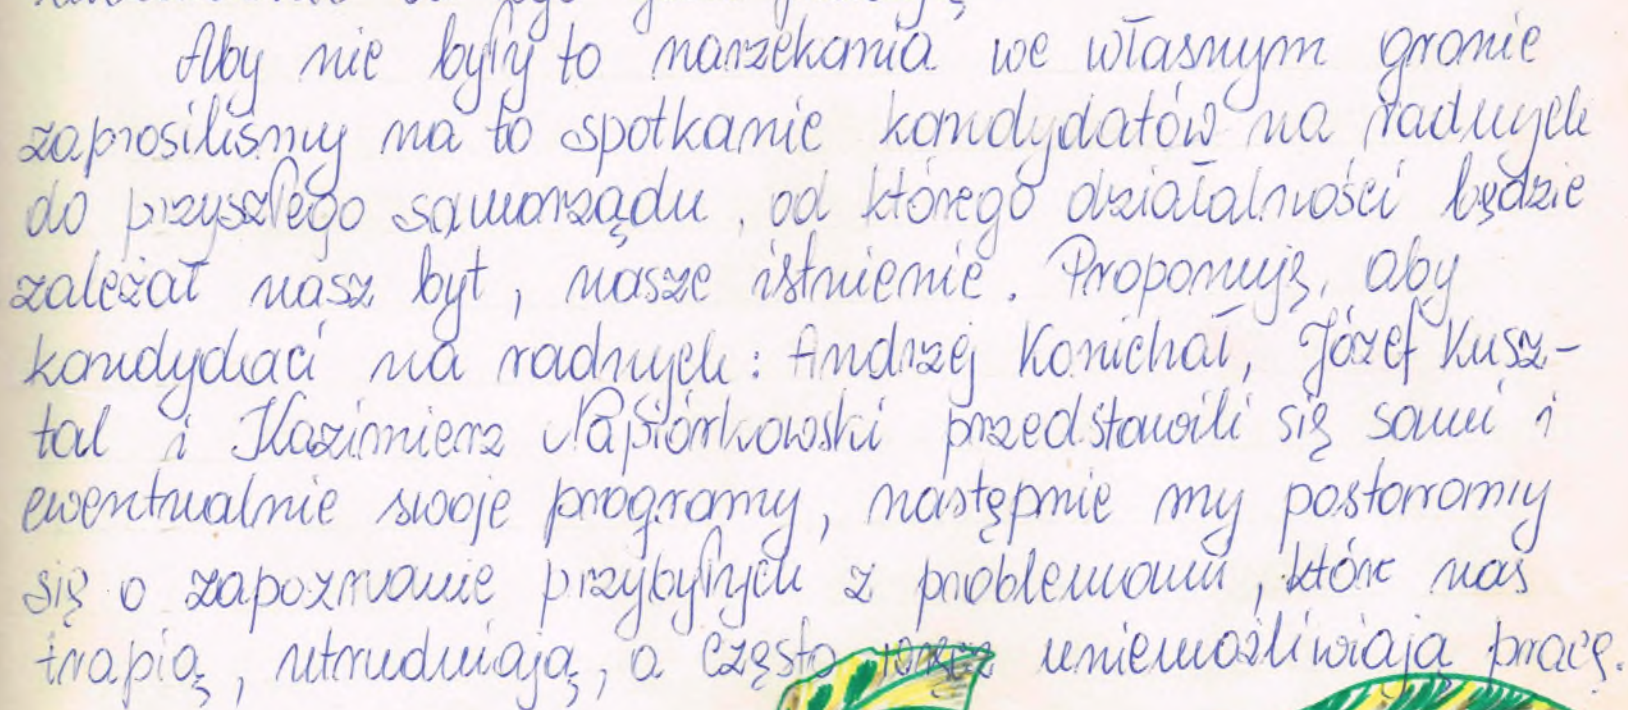 Aby nie były to narzekania we własnym gronie
zaprosiliśmy na to spotkanie kandydatów na radnych
do przyszłego samorządu, od którego działalności będzie
zależał nasz byt, nasze istnienie. Proponuję, aby
kandydaci na radnych: Andrzej Konichał, Józef Kusz-
tal i Kazimierz Napiórkowski przedstawili się sami i
ewentualnie swoje programy, następnie my postaramy
się o zapoznanie przybyłych z problemami, które nas
trapią, utrudniają, a często wręcz uniemożliwiają pracę.